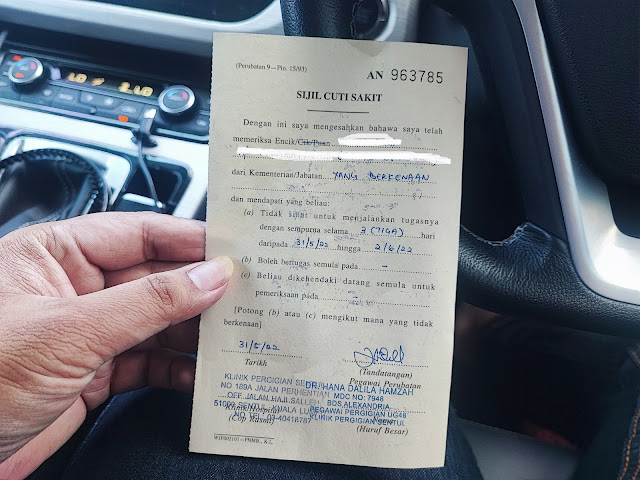 (Perubatan 9—Pin. 15/93)
AN 963785
SIJIL CUTI SAKIT
Dengan ini saya mengesahkan bahawa saya telah
memeriksa Encik/Cik/Puan
dari Kementerian/Jabatan YANG BERKENAAN
dan mendapati yang beliau:
(a) Tidak sihat untuk menjalankan tugasnya
dengan sempurna selama 3 (TIGA) hari
daripada 31/5/22 hingga 2/6/22
(b) Boleh bertugas semula pada –
(c) Beliau dikehendaki datang semula untuk
pemeriksaan pada –
[Potong (b) atau (c) mengikut mana yang tidak
berkenaan]
31/5/22
Tarikh
(Tandatangan)
Pegawai Perubatan
KLINIK PERGIGIAN
NO 189A JALAN PERHENTIAN
OFF JALAN HAJI SALLEH
51000 KUALA
NO TEL: 03-40418787
Klinik/Hospital
(Cop Rasmi)
DR. IHANA DALILA HAMZAH
MDC NO: 7948
BDS, ALEXANDRIA
PEGAWAI PERGIGIAN UG48
KLINIK PERGIGIAN SENTUL
Nama
(Huruf Besar)
PNMB., K.L.